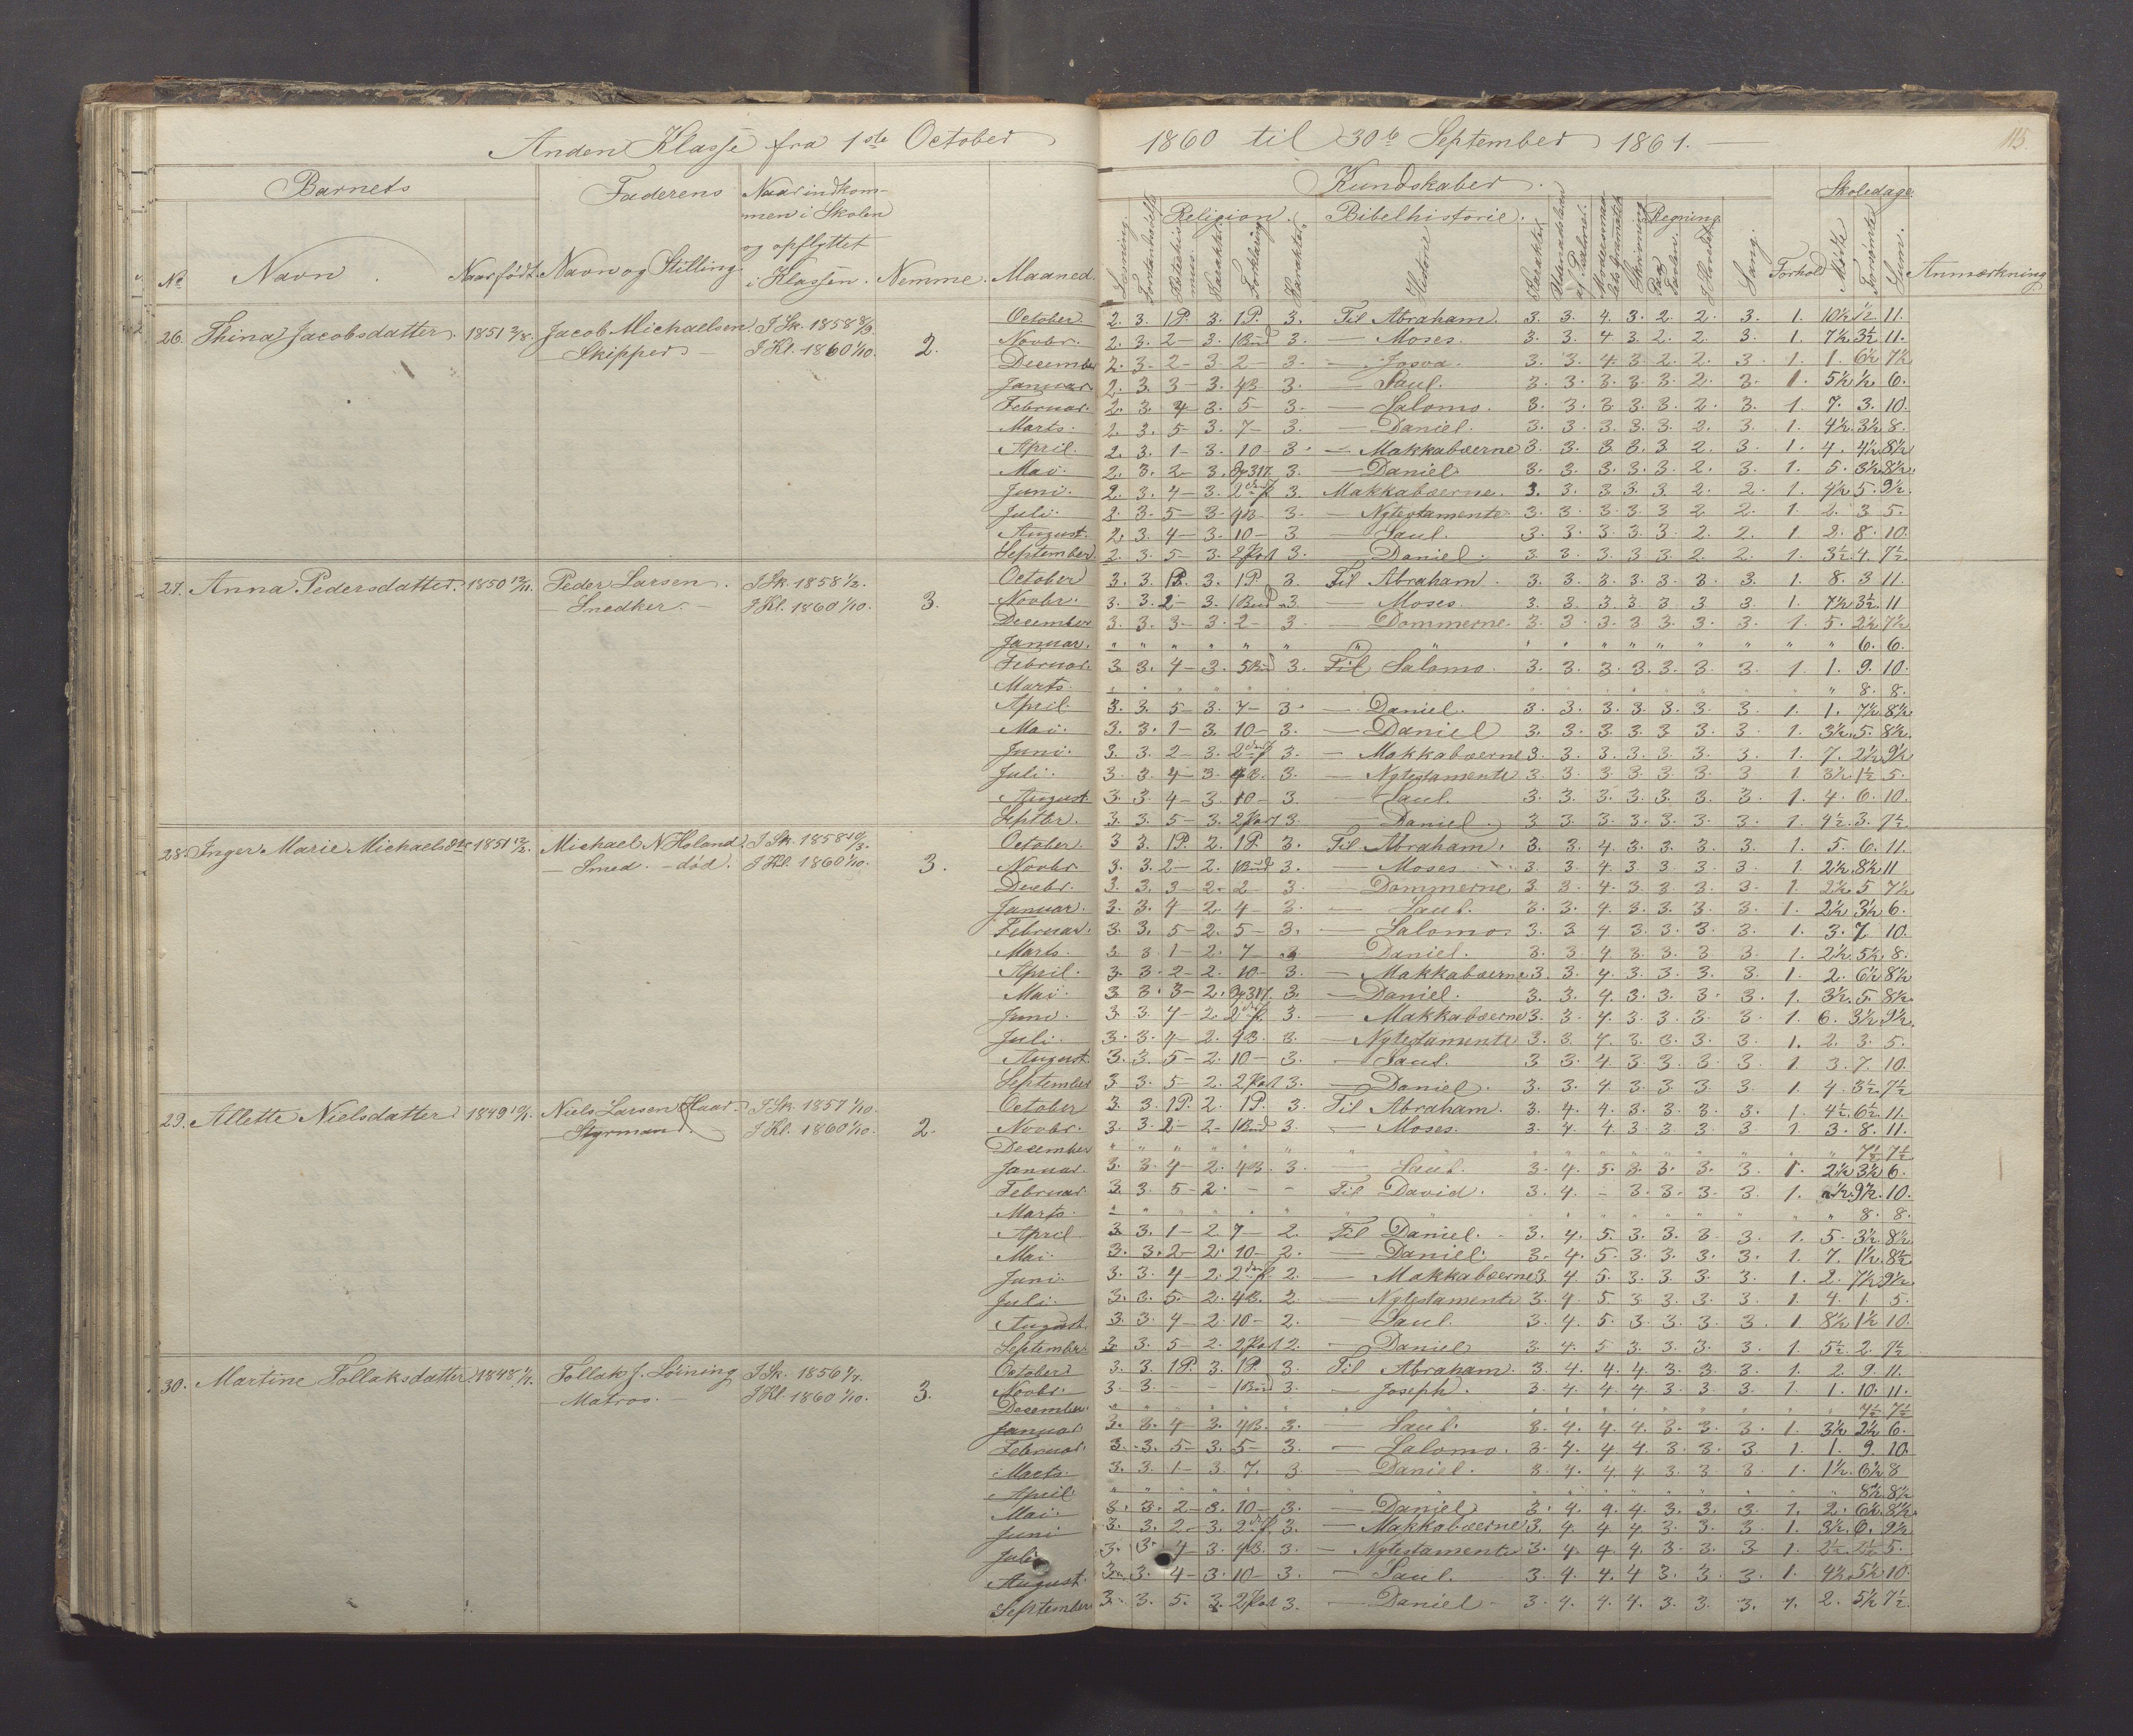 Anden Klasse fra 1ste October 1860 til 30te September 1861.
115.
Barnets Faderens Naar indkom-
men i Skolen
og opflyttet
i Klassen. Nemme. Maaned.
No Navn. Naar født. Navn og Stilling
Kundskaber. Skoledage
Læsning. Religion. Bibelhistorie. Regning. Sang. Forhold Mødte Forsømte Sum. Anmærkning
Forklaring Karakter. Historie Karakter. Skrivning
26. Thina Jacobsdatter. 1851 Jacob Michaelsen I Sk. 1858
— Skipper — I Kl. 1860 1/10. 2.
October 2. 3. 1P. 3. 1P. 3. Til Abraham. 3. 3. 4. 3. 2. 2. 3. 1. 10½ ½ 11.
Novbr. 2. 3. 2— 3. 1Bud 3. — Moses. 3. 3. 4 3. 2. 2. 3. 1. 7½ 3½ 11.
December 2. 3. 2— 3. 2— 3. — Josva. 3. 3. 4. 3. 2. 2. 3. 1. 1. 6½ 7½
Januar. 2. 3. 3— 3. 4B 3. — Saul. 3. 3. 3. 3. 3. 2. 3. 1. 5½ ½ 6.
Februar. 2. 3. 4— 3. 5— 3. — Salomo. 3. 3. 3. 3. 3. 2. 3. 1. 7. 3. 10.
Marts. 2. 3. 5— 3. 7— 3. — Daniel. 3. 3. 3. 3. 3. 2. 3. 1. 4½ 3½ 8.
April. 2. 3. 1— 3. 10— 3. — Makkabæerne 3. 3. 3. 3. 3. 2. 3. 1. 4. 4½ 8½
Mai. 2. 3. 2— 3. 3. — Daniel 3. 3. 3. 3. 3. 2. 3. 1. 5. 3½ 8½.
Juni. 2. 3. 4— 3. 3. Makkabæerne. 3. 3. 3. 3. 3. 2. 2. 1. 4½ 5. 9½.
Juli. 2. 3. 5— 3. 4B. 3. — Nytestamente 3. 3. 3. 3. 3. 2. 2. 1. 2. 3 5.
August. 2. 3. 4— 3. 10— 3 — Saul. 3. 3. 3. 3. 3. 2. 2. 1 2. 8. 10.
September. 2. 3. 5— 3. 3. — Daniel. 3. 3. 3. 3. 3. 2. 2. 1. 3½ 4. 7½
27. Anna Pedersdatter. 1850 Peder Larsen. I Sk. 1858
— Snedker. — I Kl. 1860 1/10. 3.
October 3. 3. 1P. 3. 1P. 3. Til Abraham. 3. 3. 3. 3. 3. 3. 3. 1. 8. 3 11.
Novbr. 3. 3. 2— 3. 1Bud 3. — Moses. 3. 3. 3. 3. 3 3 3. 1. 7½ 3½ 11
December 3. 3. 3— 3. 2— 3. — Dommerne. 3. 3. 3. 3 3. 3. 3. 1. 5. 2½ 7½
Januar. " " " " " " " " " " " " " " " " 6. 6.
Februar. 3. 3. 4— 3. 5Bud 3. Til Salomo. 3. 3. 3. 3. 3. 3. 3. 1 1. 9. 10.
Marts. " " " " " " " " " " " " " " " 8. 8.
April. 3. 3. 5— 3. 7— 3. — Daniel. 3. 3. 3. 3. 3. 3. 3. 1. 1. 7½ 8½
Mai. 3. 3. 1— 3. 10— 3. — Daniel 3. 3. 3. 3. 3 3. 3. 1. 3½ 5. 8½.
Juni. 3. 3. 2 3. 3. — Makkabæerne 3. 3. 3. 3. 3. 3. 3. 1. 7. 2½ 9½
Juli. 3. 3. 4— 3. 4B. 3. — Nytestamente 3. 3. 3. 3. 3. 3. 3 1. 3½ 1½ 5.
August. 3. 3. 4— 3. 10— 3. — Saul. 3. 3. 3. 3. 3. 3. 3. 1. 4. 6. 10.
Septter. 3. 3. 5— 3. 3. — Daniel. 3 3. 3. 3. 3. 3. 3. 1. 4½ 3. 7½
28. Inger Marie Michaelsdtr 1851 Michael N. Holand. I Sk. 1858
— Smed. — död. I Kl. 1860 1/10. 3.
October. 3 3. 1P. 2. 1P. 3. Til Abraham. 3. 3. 4. 3. 3. 3. 3. 1. 5. 6. 11.
Novbr. 3. 3. 2— 2. 1Bud 3. — Moses 3. 3 4. 3. 3 3. 3 1. 2½ 8½ 11
Decbr. 3. 3. 3— 2. 2— 3. — Dommerne 3. 3. 4. 3. 3. 3. 3. 1. 2½ 5 7½
Januar. 3. 3. 4— 2. 4— 3. — Saul. 3. 3. 4. 3. 3. 3. 3. 1. 2½ 3½ 6.
Februar. 3. 3. 5— 2. 5— 3. — Salomo 3. 3. 4 3. 3. 3. 3 1. 3. 7. 10.
Marts. 3 3 1— 2. 7— 3 Daniel. 3. 3. 4. 3. 3. 3. 3 1. 2½ 5½ 8.
April. 3. 3. 2— 2. 10— 3. — Makkabæerne 3. 3. 4. 3. 3. 3. 3. 1. 2. 6½ 8½
Mai. 3. 3. 3— 2. 3. — Daniel. 3. 3. 4. 3. 3. 3. 3. 1. 3½ 5. 8½
Juni. 3. 3 4— 2. 3. — Makkabæerne 3. 3. 4. 3. 3. 3. 3. 1. 6. 3½ 9½
Juli. 3. 3. 4— 2. 4B. 3. — Nytestamente 3. 3 4. 3. 3. 3. 3 1. 2. 3. 5.
August. 3. 3. 5— 2. 10— 3. — Saul. 3 3 4. 3. 3. 3. 3 1 3. 7. 10.
September 3. 3. 5— 2. 3. — Daniel. 3. 3. 4. 3. 3. 3. 3. 1 4. 3½ 7½
29. Allette Nielsdatter. 1849 Niels Larsen Haar. I Sk. 1857 1/10.
— Styrmand. I Kl. 1860 1/10. 2.
October 3. 3 1P. 2. 1P. 3. Til Abraham. 3. 4. 4. 3. 3. 3. 3. 1. 4½ 6½ 11.
Novbr. 3. 3. 2— 2— 1Bud 3. — Moses. 3. 4. 4. 3 3. 3. 3 1. 3. 8. 11.
December " " " " " " " " " " " " " " " 7½ 7½
Januar. 3. 3. 4— 2. 4B. 3. — Saul. 3. 4. 5. 3. 3. 3. 3. 1. 2½ 3½ 6.
Februar. 3. 3. 5— 2. — — Til David. 3. 4. — 3. 3. 3. 3. 1. ½ 9½ 10.
Marts. " " " " " " " " " " " " " " " 8. 8.
April 3. 3. 1— 2 7— 2. Til Daniel. 3. 4. 5. 3. 3. 3. 3. 1. 5. 3½ 8½
Mai. 3. 3. 2— 2. 10— 2. — Daniel. 3. 4. 5. 3. 3. 3. 3. 1. 7. 1½ 8½
Juni. 3. 3. 4— 2. 2. — Makkabæerne 3. 4. 5. 3. 3. 3. 3. 1. 2. 7½ 9½
Juli. 3. 3. 5. 2. 4B. 2. — Nytestamente 3. 4. 5. 3 3. 3. 3. 1. 4. 1. 5.
August. 3. 3. 4— 2. 10— 2. — Saul. 3. 4. 5. 3. 3. 3. 3. 1 8½ 1½ 10.
September 3. 3. 5— 2. 2. — Daniel 3. 4. 5 3. 3. 3. 3. 1. 5½ 2. 7½
30. Martine Tollaksdatter 1848 Tollak J. Löining I Sk. 1856
— Matros. — I Kl. 1860 1/10. 3.
October 3. 3 1P. 3. 1P. 3. Til Abraham. 3. 4. 4. 4. 3. 3. 3. 1. 2. 9. 11.
Novbr. 3. 3. — 1Bud 3. — Joseph. 3. 4. 4. 4. 3. 3. 3. 1. 1. 10. 11.
December. " " " " " " " " " " " " " " " 7½ 7½
Januar 3. 3. 4— 3. 4B. 3. — Saul. 3. 4. 4. 4. 3. 3. 3. 1. 3½ 2½ 6.
Februar. 3. 3. 5— 3. 5— 3. — Salomo. 3. 4. 4. 4. 3. 3. 3 1. 1. 9. 10.
Marts. 3. 3. 1— 3. 7. 3. — Daniel. 3. 4. 4. 4. 3. 3. 3. 1. 1½ 6½ 8
April " " " " " " " " " " " " " " " 8½ 8½
Mai. 3. 3. 2— 3. 10— 3. — Daniel 3. 4. 4. 4. 3. 3. 3. 1. 2. 6½ 8½
Juni 3. 3. 2— 3. 3. — Makkabæerne 3. 4. 4. 4. 3. 3. 3. 1. 3½ 6. 9½
Juli 3. 3. 4— 3. 4B. 3. — Nytestamente 3. 4. 4. 4. 3. 3. 3 1. 2½ 2½ 5.
August. 3. 3. 4— 3. 10— 3. — Saul. 3 4. 4. 4 3. 3. 3. 1. 4½ 5½ 10.
September 3. 3. 5. 3. 3. — Daniel 3. 4. 4. 4. 3. 3. 3. 1. 2. 5½ 7½